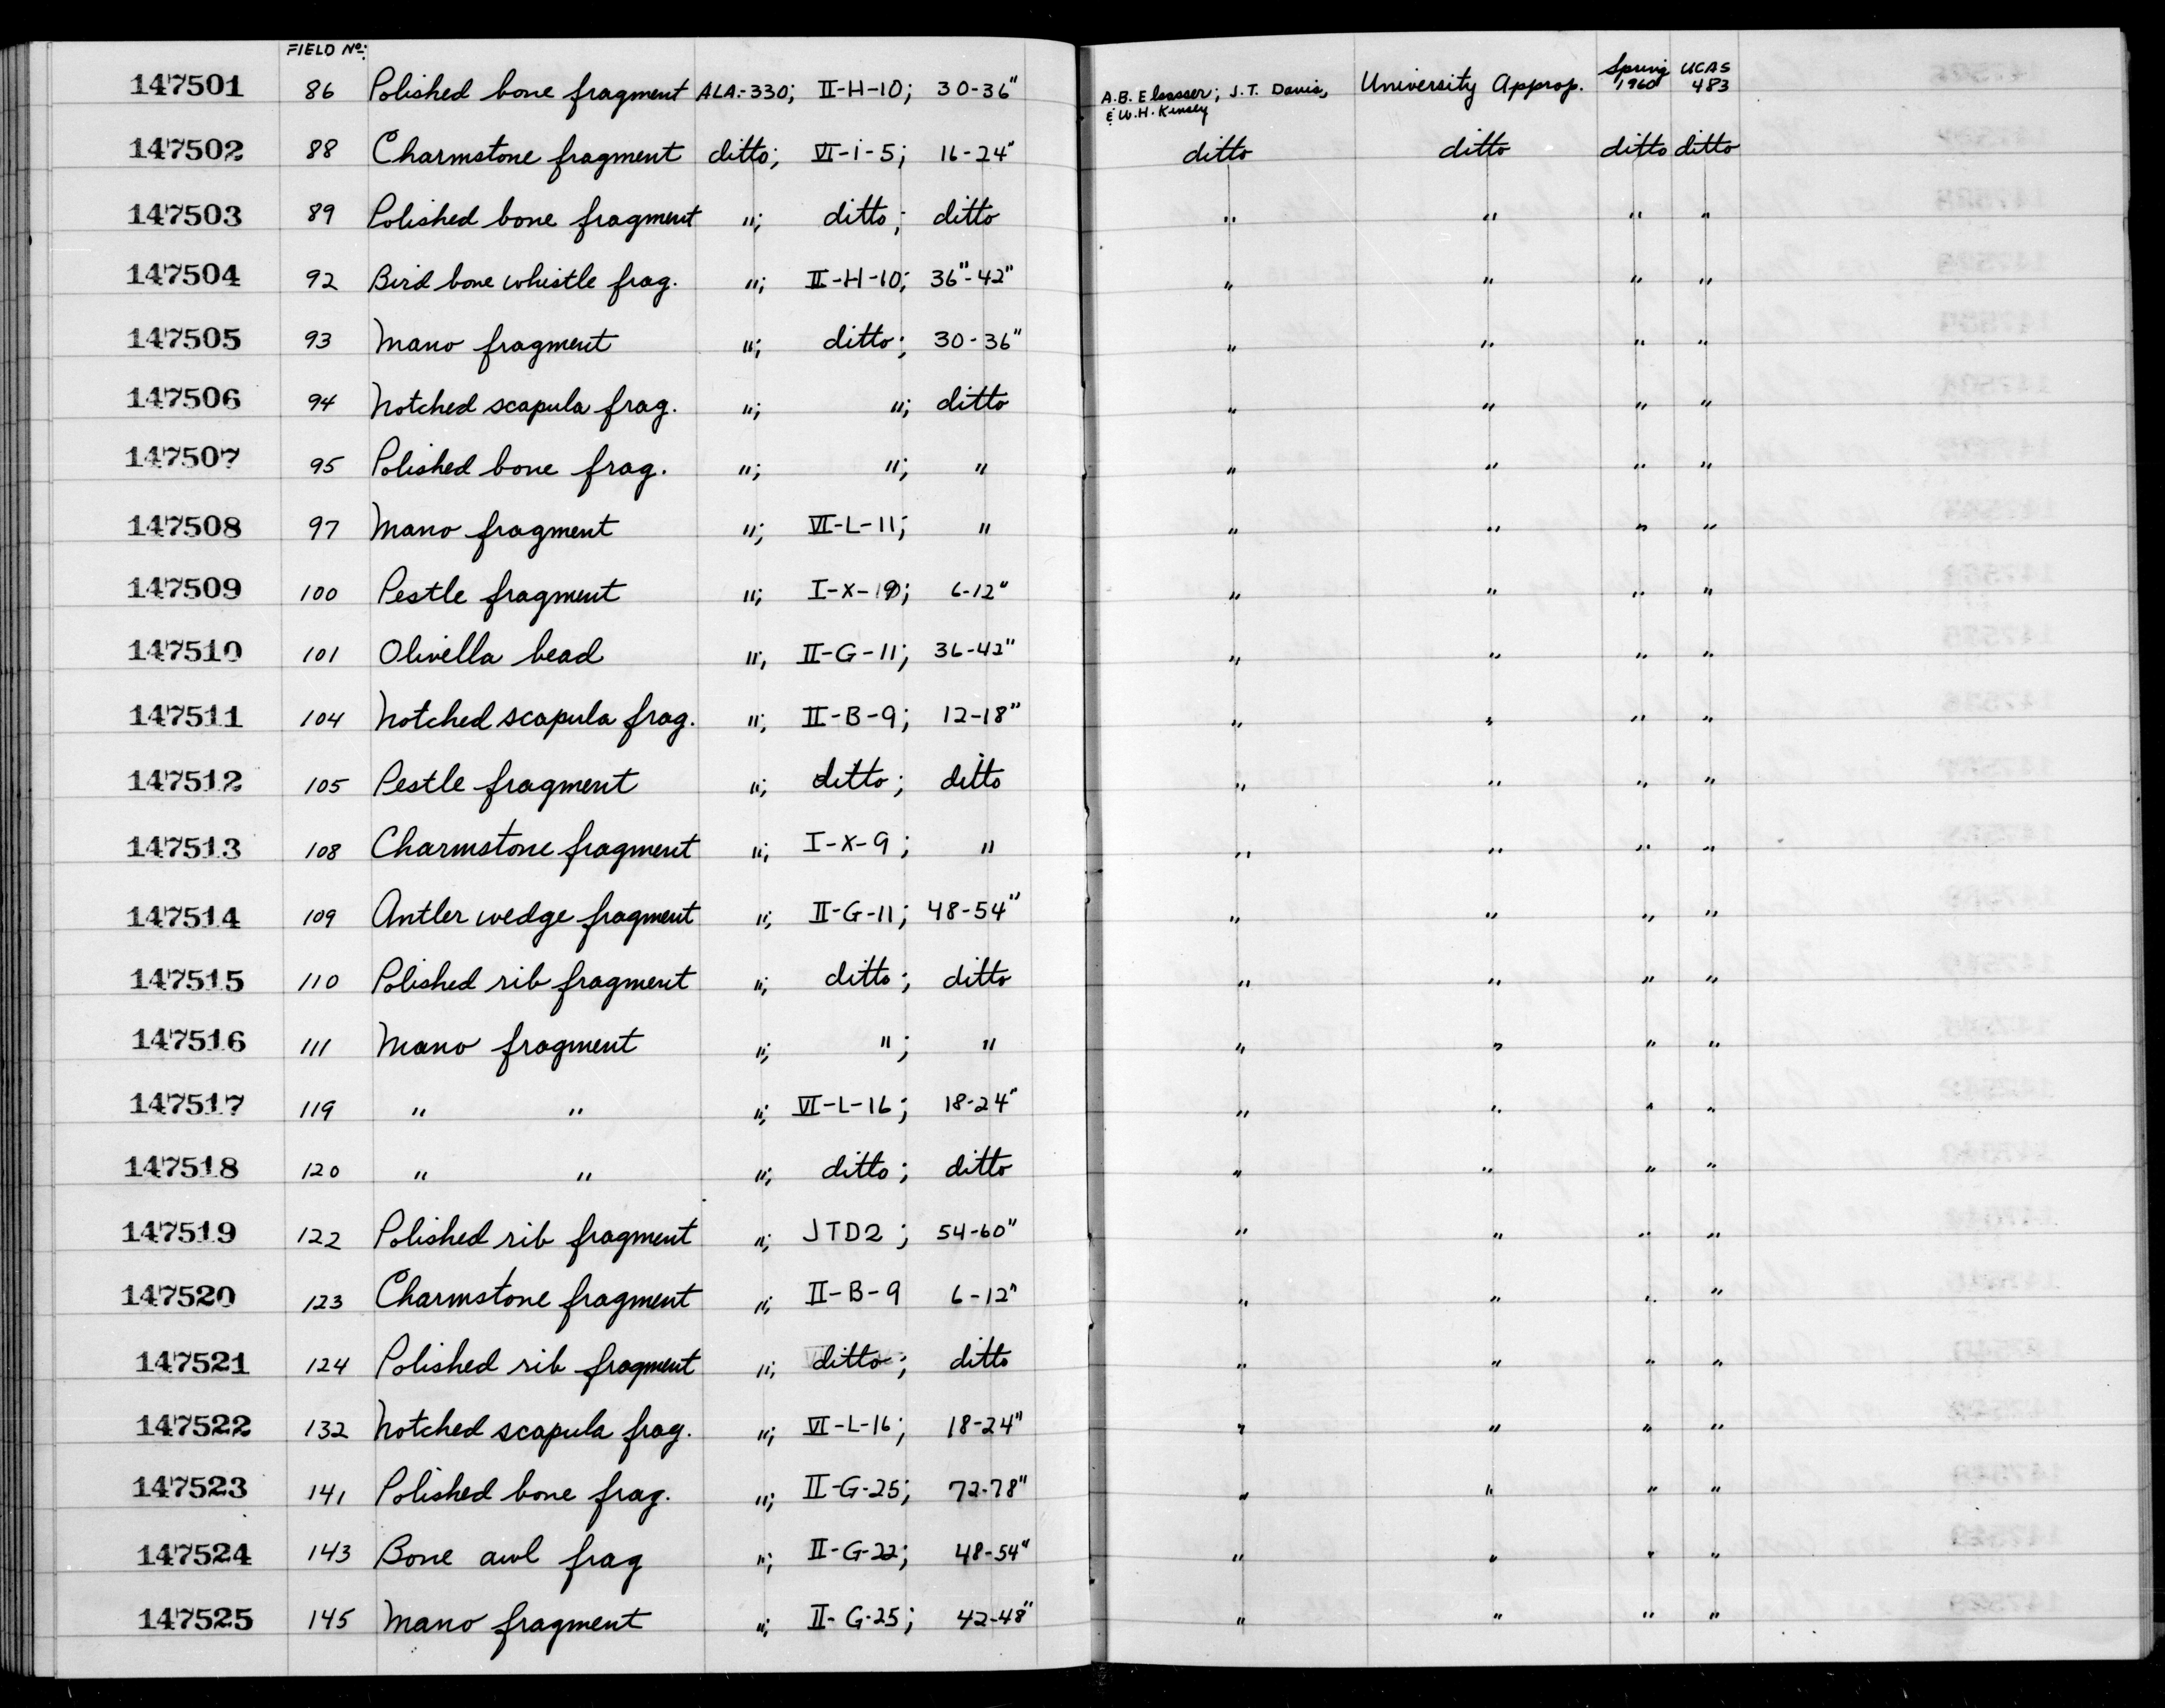 FIELD No:
147501 86 Polished bone fragment ALA.-330; II-H-10; 30-36" A.B. Elsasser; J.T. Davis, & W.H. Kinsey University Approp. Spring 1960 UCAS 483
147502 88 Charmstone fragment ditto; VI-i-5; 16-24" ditto ditto ditto ditto
147503 89 Polished bone fragment "; ditto; ditto " " " "
147504 92 Bird bone whistle frag. "; II-H-10; 36"-42" " " " "
147505 93 Mano fragment "; ditto; 30-36" " " " "
147506 94 Notched scapula frag. "; "; ditto " " " "
147507 95 Polished bone frag. "; "; " " " " "
147508 97 Mano fragment "; VI-L-11; " " " " "
147509 100 Pestle fragment "; I-X-19; 6-12" " " " "
147510 101 Olivella bead "; II-G-11; 36-42" " " " "
147511 104 Notched scapula frag. "; II-B-9; 12-18" " " " "
147512 105 Pestle fragment "; ditto; ditto " " " "
147513 108 Charmstone fragment "; I-X-9; " " " " "
147514 109 Antler wedge fragment "; II-G-11; 48-54" " " " "
147515 110 Polished rib fragment "; ditto; ditto " " " "
147516 111 Mano fragment "; "; " " " " "
147517 119 " " "; VI-L-16; 18-24" " " " "
147518 120 " " "; ditto; ditto " " " "
147519 122 Polished rib fragment "; JTD2; 54-60" " " " "
147520 123 Charmstone fragment "; II-B-9 6-12" " " " "
147521 124 Polished rib fragment "; ditto; ditto " " " "
147522 132 Notched scapula frag. "; VI-L-16; 18-24" " " " "
147523 141 Polished bone frag. "; II-G-25; 72-78" " " " "
147524 143 Bone awl frag "; II-G-22; 48-54" " " " "
147525 145 Mano fragment "; II-G-25; 42-48" " " " "